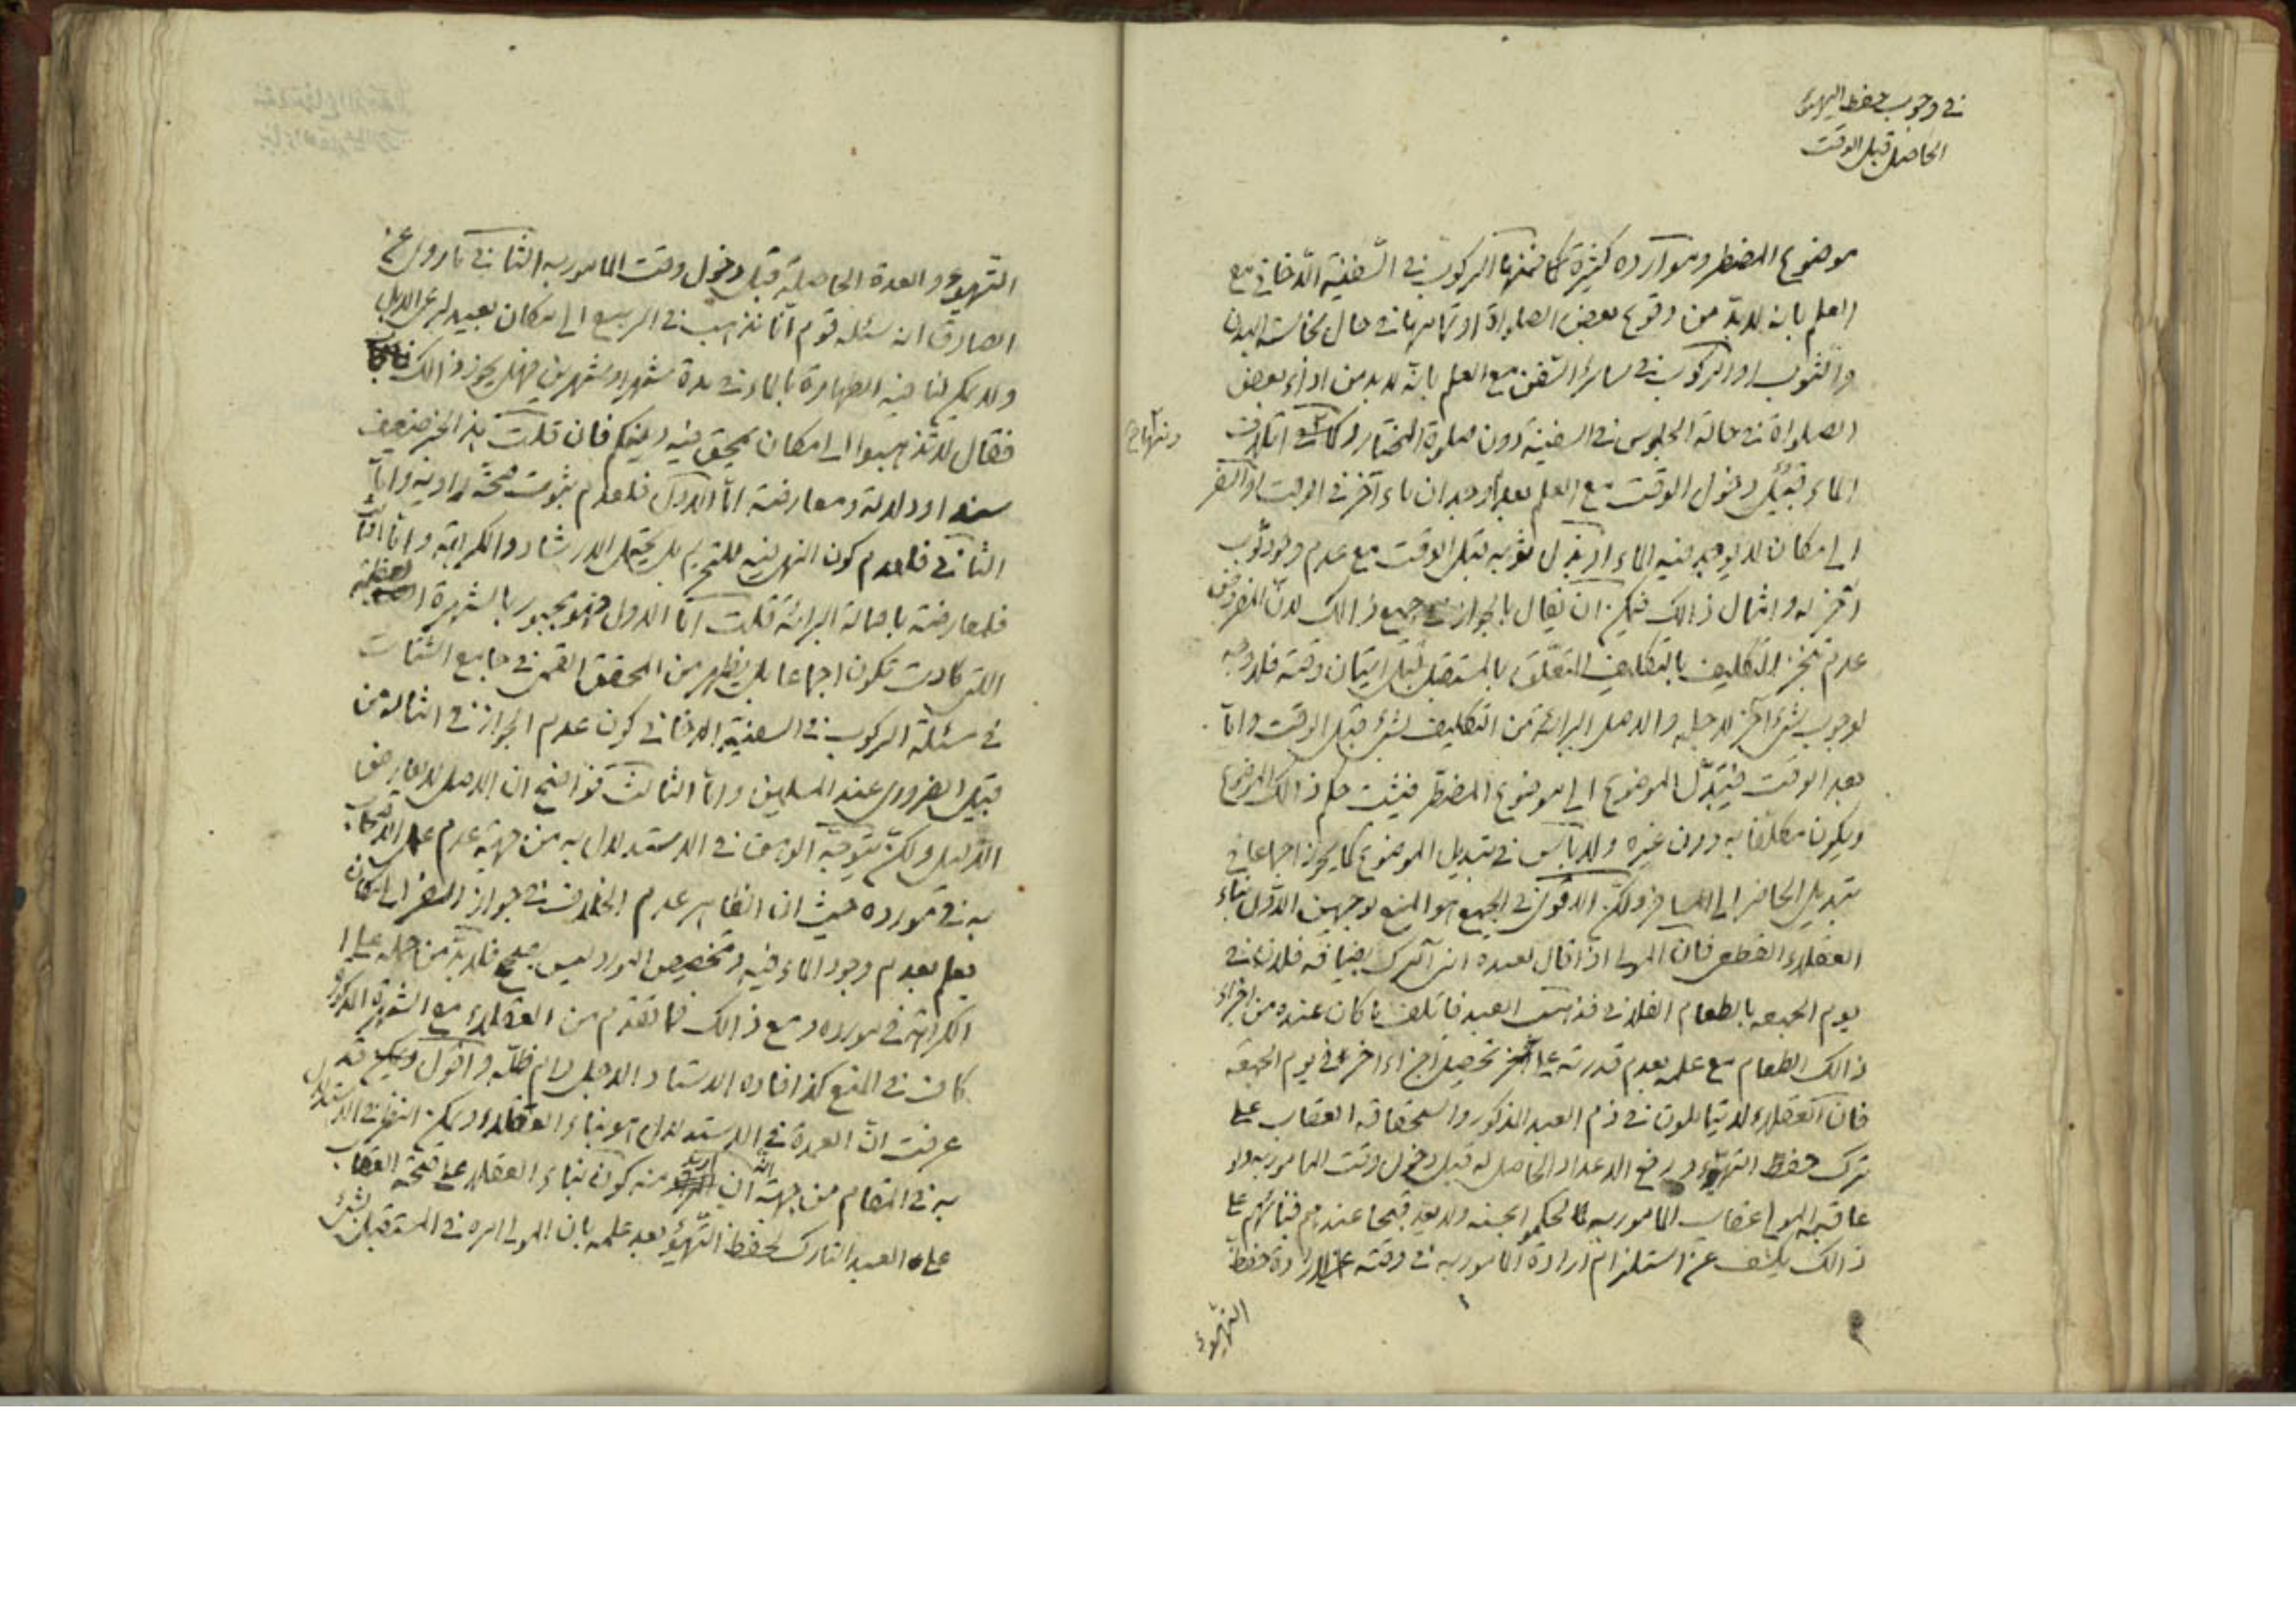 في وجوب حفظ التهيؤ
الحاصل قبل الوقت
موضوع المضطر وموارده كثيرة فمنها الركوب في السفينة الدخاني مع
العلم بانه لابد من وقوع بعض الصلواة او تمامها في حال نجاسة البدن
والثوب او الركوب في سائر السفن مع العلم بانه لابد من اداء بعض
الصلواة في حالة الجلوس في السفينة دون صلوة المختار و اتلاف
ومنها
الماء قبيل دخول الوقت مع العلم بعدم وجدان ماء آخر في الوقت او السفر
الى مكان لا يوجد فيه الماء او بذل ثوبه قبل الوقت مع عدم وجود ثوب
آخر له وامثال ذالك فيمكن ان يقال بالجواز في جميع ذالك لان المفروض
عدم تنجز التكليف بالتكليف المتعلق بالمستقبل قبل اتيان وقته فلا وجه
لوجوب شئ آخر لاجله والاصل البرائة من التكليف بشئ قبل الوقت واما
بعد الوقت فيتبدل الموضوع الى موضوع المضطر فيثبت حكم ذالك الموضوع
ويكون مكلفا به دون غيره ولا باس في تبديل الموضوع كما يجوز اجماعا في
تبديل الحاضر الى المسافر ولكن الاقوى في الجميع هو المنع لوجهين الاول بناء
العقلاء القطعي فان المولى اذا قال لعبده اني آمرك بضيافة فلان في
يوم الجمعه بالطعام الفلاني فذهب العبد فاتلف ما كان عنده من اجزاء
ذالك الطعام مع علمه بعدم قدرته على تحصيل اجزاء اخر في يوم الجمعة
فان العقلاء لا يتاملون في ذم العبد المذكور واستحقاقه العقاب على
ترك حفظ التهيؤ ورفع الاعداد الحاصل له قبل دخول وقت المامور به ولو
عاقبه المولى عقاب المامور به لم يعد قبيحا عندهم فبنائهم على
ذالك يكشف عن استلزام ارادة المامور به في وقته لارادة حفظ
التهيؤ
التهيؤ والعدة الحاصلة قبل دخول وقت المامور به الثاني ما روى عن
الصادق انه سئله قوم انا نذهب في الربيع الى مكان بعيد لرعى الابل
ولا يمكن لنا فيه الطهارة بالماء في مدة شهر او شهرين فهل يجوز ذالك
فقال لا تذهبوا الى مكان يمحق فيه دينكم فان قلت هذا الخبر ضعيف
سندا ودلالة ومعارضة اما الاول فلعدم ثبوت صحة راويه واما
الثاني فلعدم كون النهى فيه للتحريم بل يحتمل الارشاد والكراهة واما الثالث
فلمعارضته باصالة البرائة قلت اما الاول فهو مجبور بالشهرة العظيمة
التي كادت تكون اجماعا بل يظهر من المحقق القمى في جامع الشتات
في مسئلة الركوب في السفينة الدخاني كون عدم الجواز في امثاله من
قبيل الضروري عند المسلمين واما الثالث فواضح ان الاصل لا يعارض
الدليل ولكن يتوجه الوهن في الاستدلال به من جهة عدم عمل الاصحاب
به في مورده حيث ان الظاهر عدم الخلاف في جواز السفر الى مكان
يعلم بعدم وجود الماء فيه وتخصيص المورد ليس بصحيح فلابد من حمله على
الكراهة في مورده ومع ذالك فما تقدم من العقلاء مع الشهرة المذكورة
كاف في المنع كذا افاده الاستاد الاجل دام ظله واقول قد
عرفت ان العمدة في الاستدلال هو بناء العقلاء ويمكن النظر في الاستدلال
به في المقام من جهة ان منه كون بناء العقلاء على صحة العقاب
على العبد التارك لحفظ التهيؤ بعد علمه بان المولى امره في المستقبل بشئ